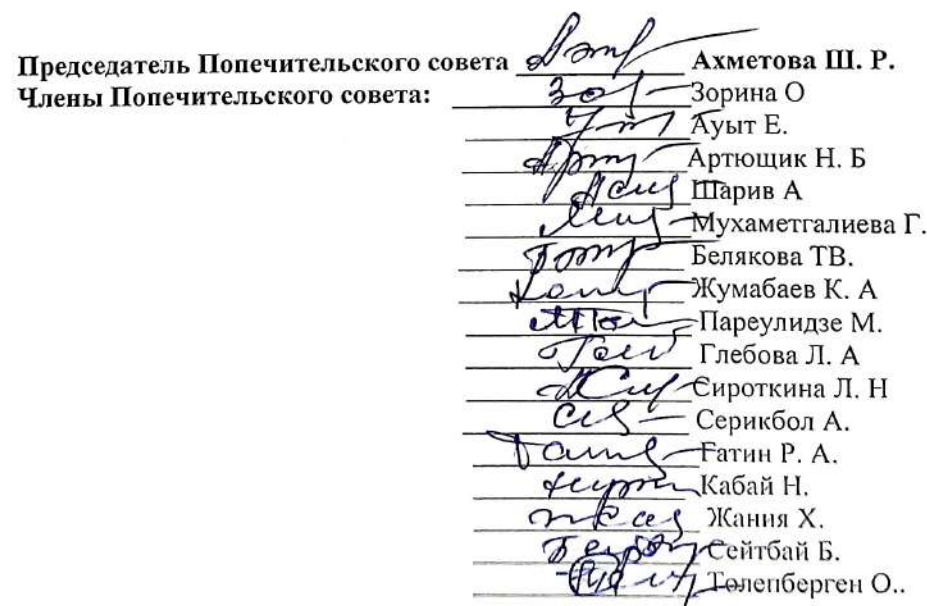 Председатель Попечительского совета Ахметова Ш. Р.
Члены Попечительского совета: Зорина О
Ауыт Е.
Артющик Н. Б
Шарив А
Мухаметгалиева Г.
Белякова ТВ.
Жумабаев К. А
Пареулидзе М.
Глебова Л. А
Сироткина Л. Н
Серикбол А.
Гатин Р. А.
Кабай Н.
Жания Х.
Сейтбай Б.
Толепберген О..